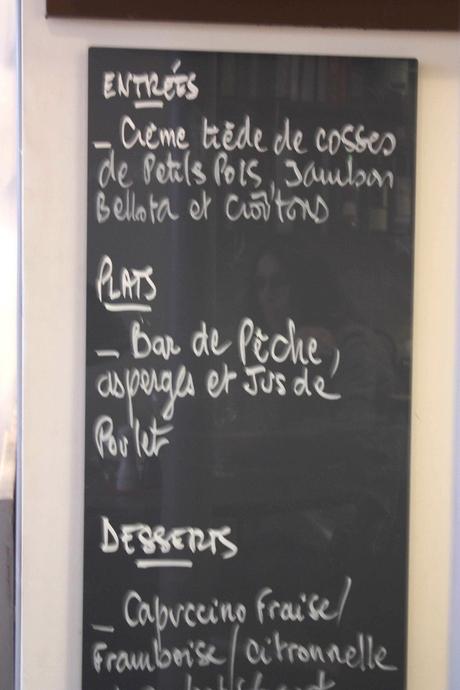 ENTRÉES
_ Crème tiède de cosses
de Petits Pois, Jambon
Bellota et Croûtons
PLATS
_ Bar de Pêche,
asperges et Jus de
Poulet
DESSERTS
_ Capuccino Fraise/
Framboise/Citronnelle